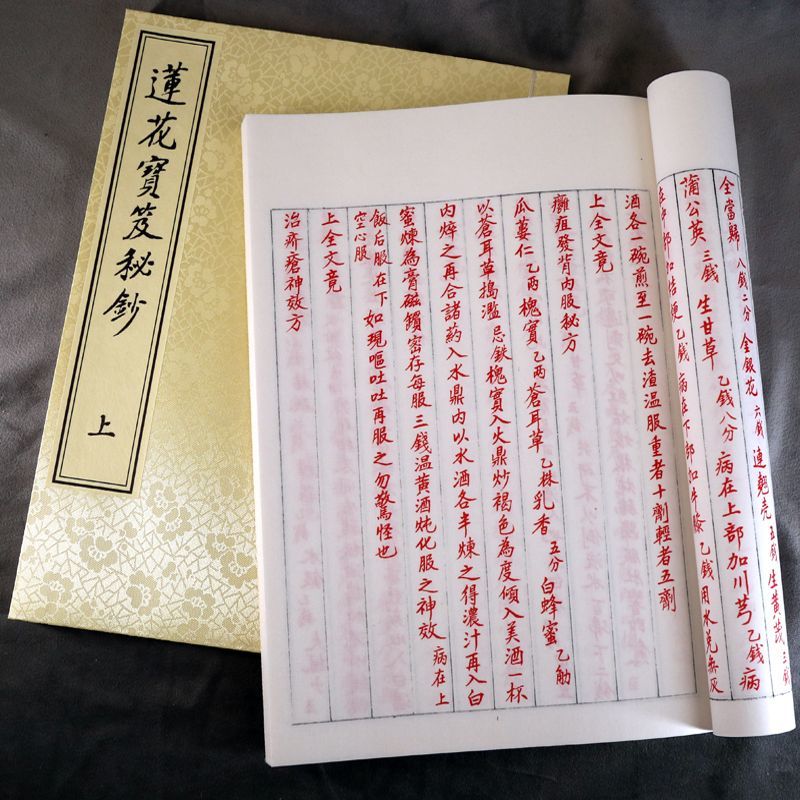 蓮花寶笈秘鈔 上
全當歸 八錢二分 金銀花 六錢 連翹壳 五錢 生黃蓍 三錢
蒲公英 三錢 生甘草 乙錢八分 病在上部加川芎乙錢病
在中部加桔梗 乙錢 病在下部加牛膝 乙錢用水 無灰
酒各一碗煎至一碗去渣温服重者十劑輕者五劑
上全文竟
癰疽發背内服秘方
瓜蔞仁 乙两 槐實 乙两 蒼耳草 乙株 乳香 五分 白蜂蜜 乙觔
以蒼耳草搗濫 忌鉄 槐實入火鼎炒褐色為度傾入美酒一杯
内焠之再合諸药入水鼎内以水酒各半煉之得濃汁再入白
蜜煉為膏磁鑵密存每服三錢温黄酒炖化服之神效 病在上
飯后服在下
空心服
如現嘔吐吐再服之勿驚怪也
上全文竟
治疥瘡神效方